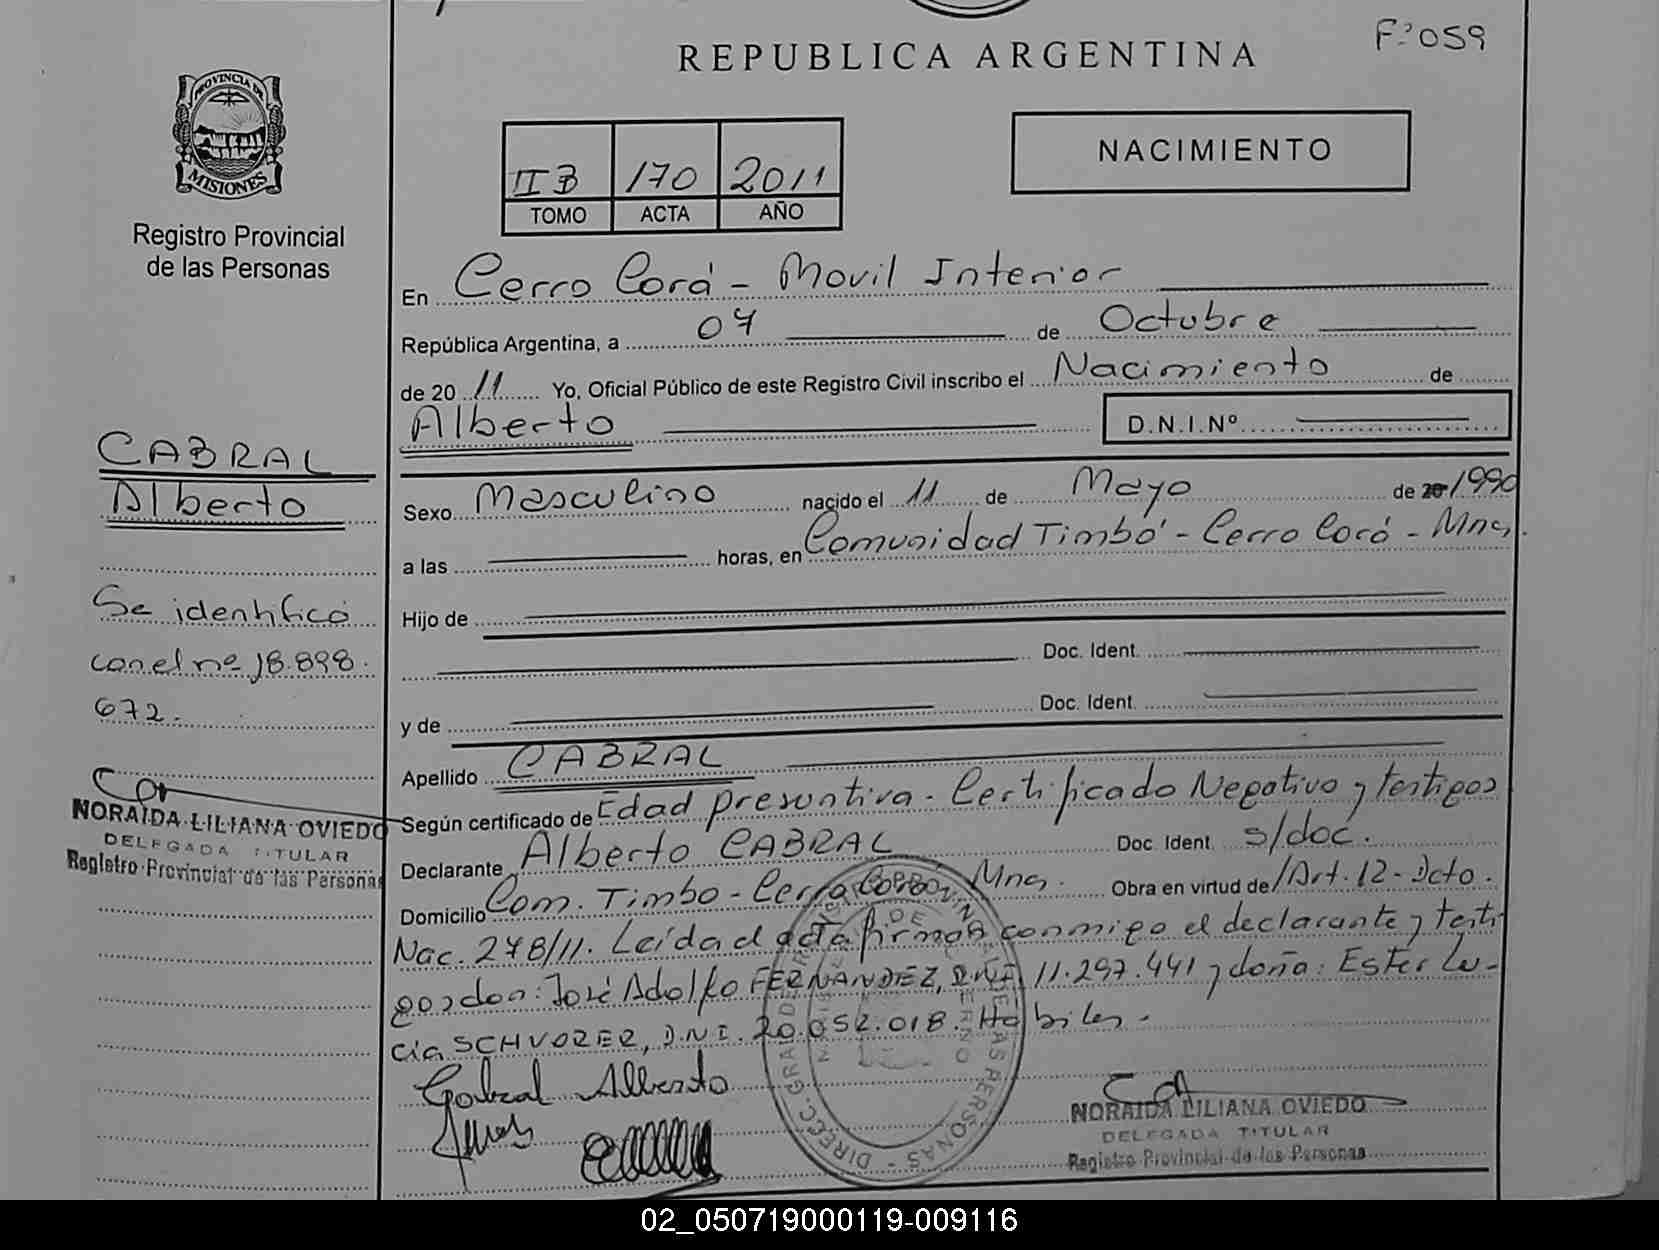 F:059
REPUBLICA ARGENTINA
PROVINCIA DE
MISIONES
Registro Provincial
de las Personas
II B 170 2011
TOMO ACTA AÑO
NACIMIENTO
En Cerro Corá - Movil Interior
República Argentina, a 07 de Octubre
de 2011 Yo, Oficial Público de este Registro Civil inscribo el Nacimiento de
Alberto D.N.I.Nº
CABRAL
Alberto
Se identificó
con el nº 18.898.
672.
NORAIDA LILIANA OVIEDO
DELEGADA TITULAR
Registro Provincial de las Personas
Sexo Masculino nacido el 11 de Mayo de 20 1990
a las horas, en Comunidad Timbó - Cerro Corá - Mnes.
Hijo de
Doc. Ident.
y de Doc. Ident.
Apellido CABRAL
Según certificado de Edad presuntiva - Certificado Negativo y testigos
Declarante Alberto CABRAL Doc. Ident. s/doc.
Domicilio Com. Timbo - Cerro Corá Mnes. Obra en virtud de /Art. 12 - Dcto.
Nac. 278/11. Leída el acta firman conmigo el declarante y testi
gos don: José Adolfo FERNANDEZ, D.N.I. 11.297.441 y doña: Ester Lu-
cia SCHVORER, D.N.I. 20.052.018. Habiles.-
Cabral Alberto
DIREC. GRAL. DE REG. PROVINCIAL DE LAS PERSONAS
NORAIDA LILIANA OVIEDO
DELEGADA TITULAR
Registro Provincial de las Personas
02_050719000119-009116